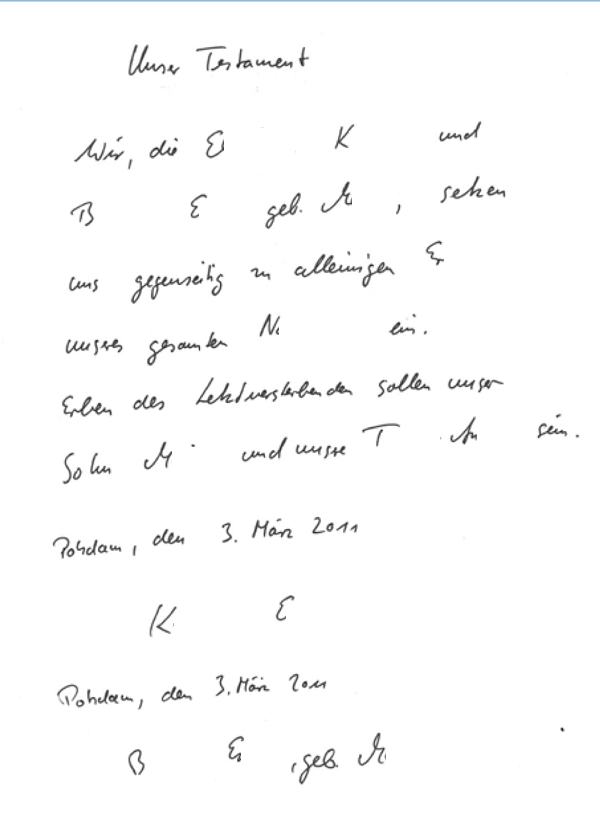 Unser Testament
Wir, die E K und
B E geb. M, setzen
uns gegenseitig zu alleinigen E
unseres gesamten N ein.
Erben des Letztversterbenden sollen unser
Sohn M und unsere T A sein.
Potsdam, den 3. März 2011
K E
Potsdam, den 3. März 2011
B E, geb. M